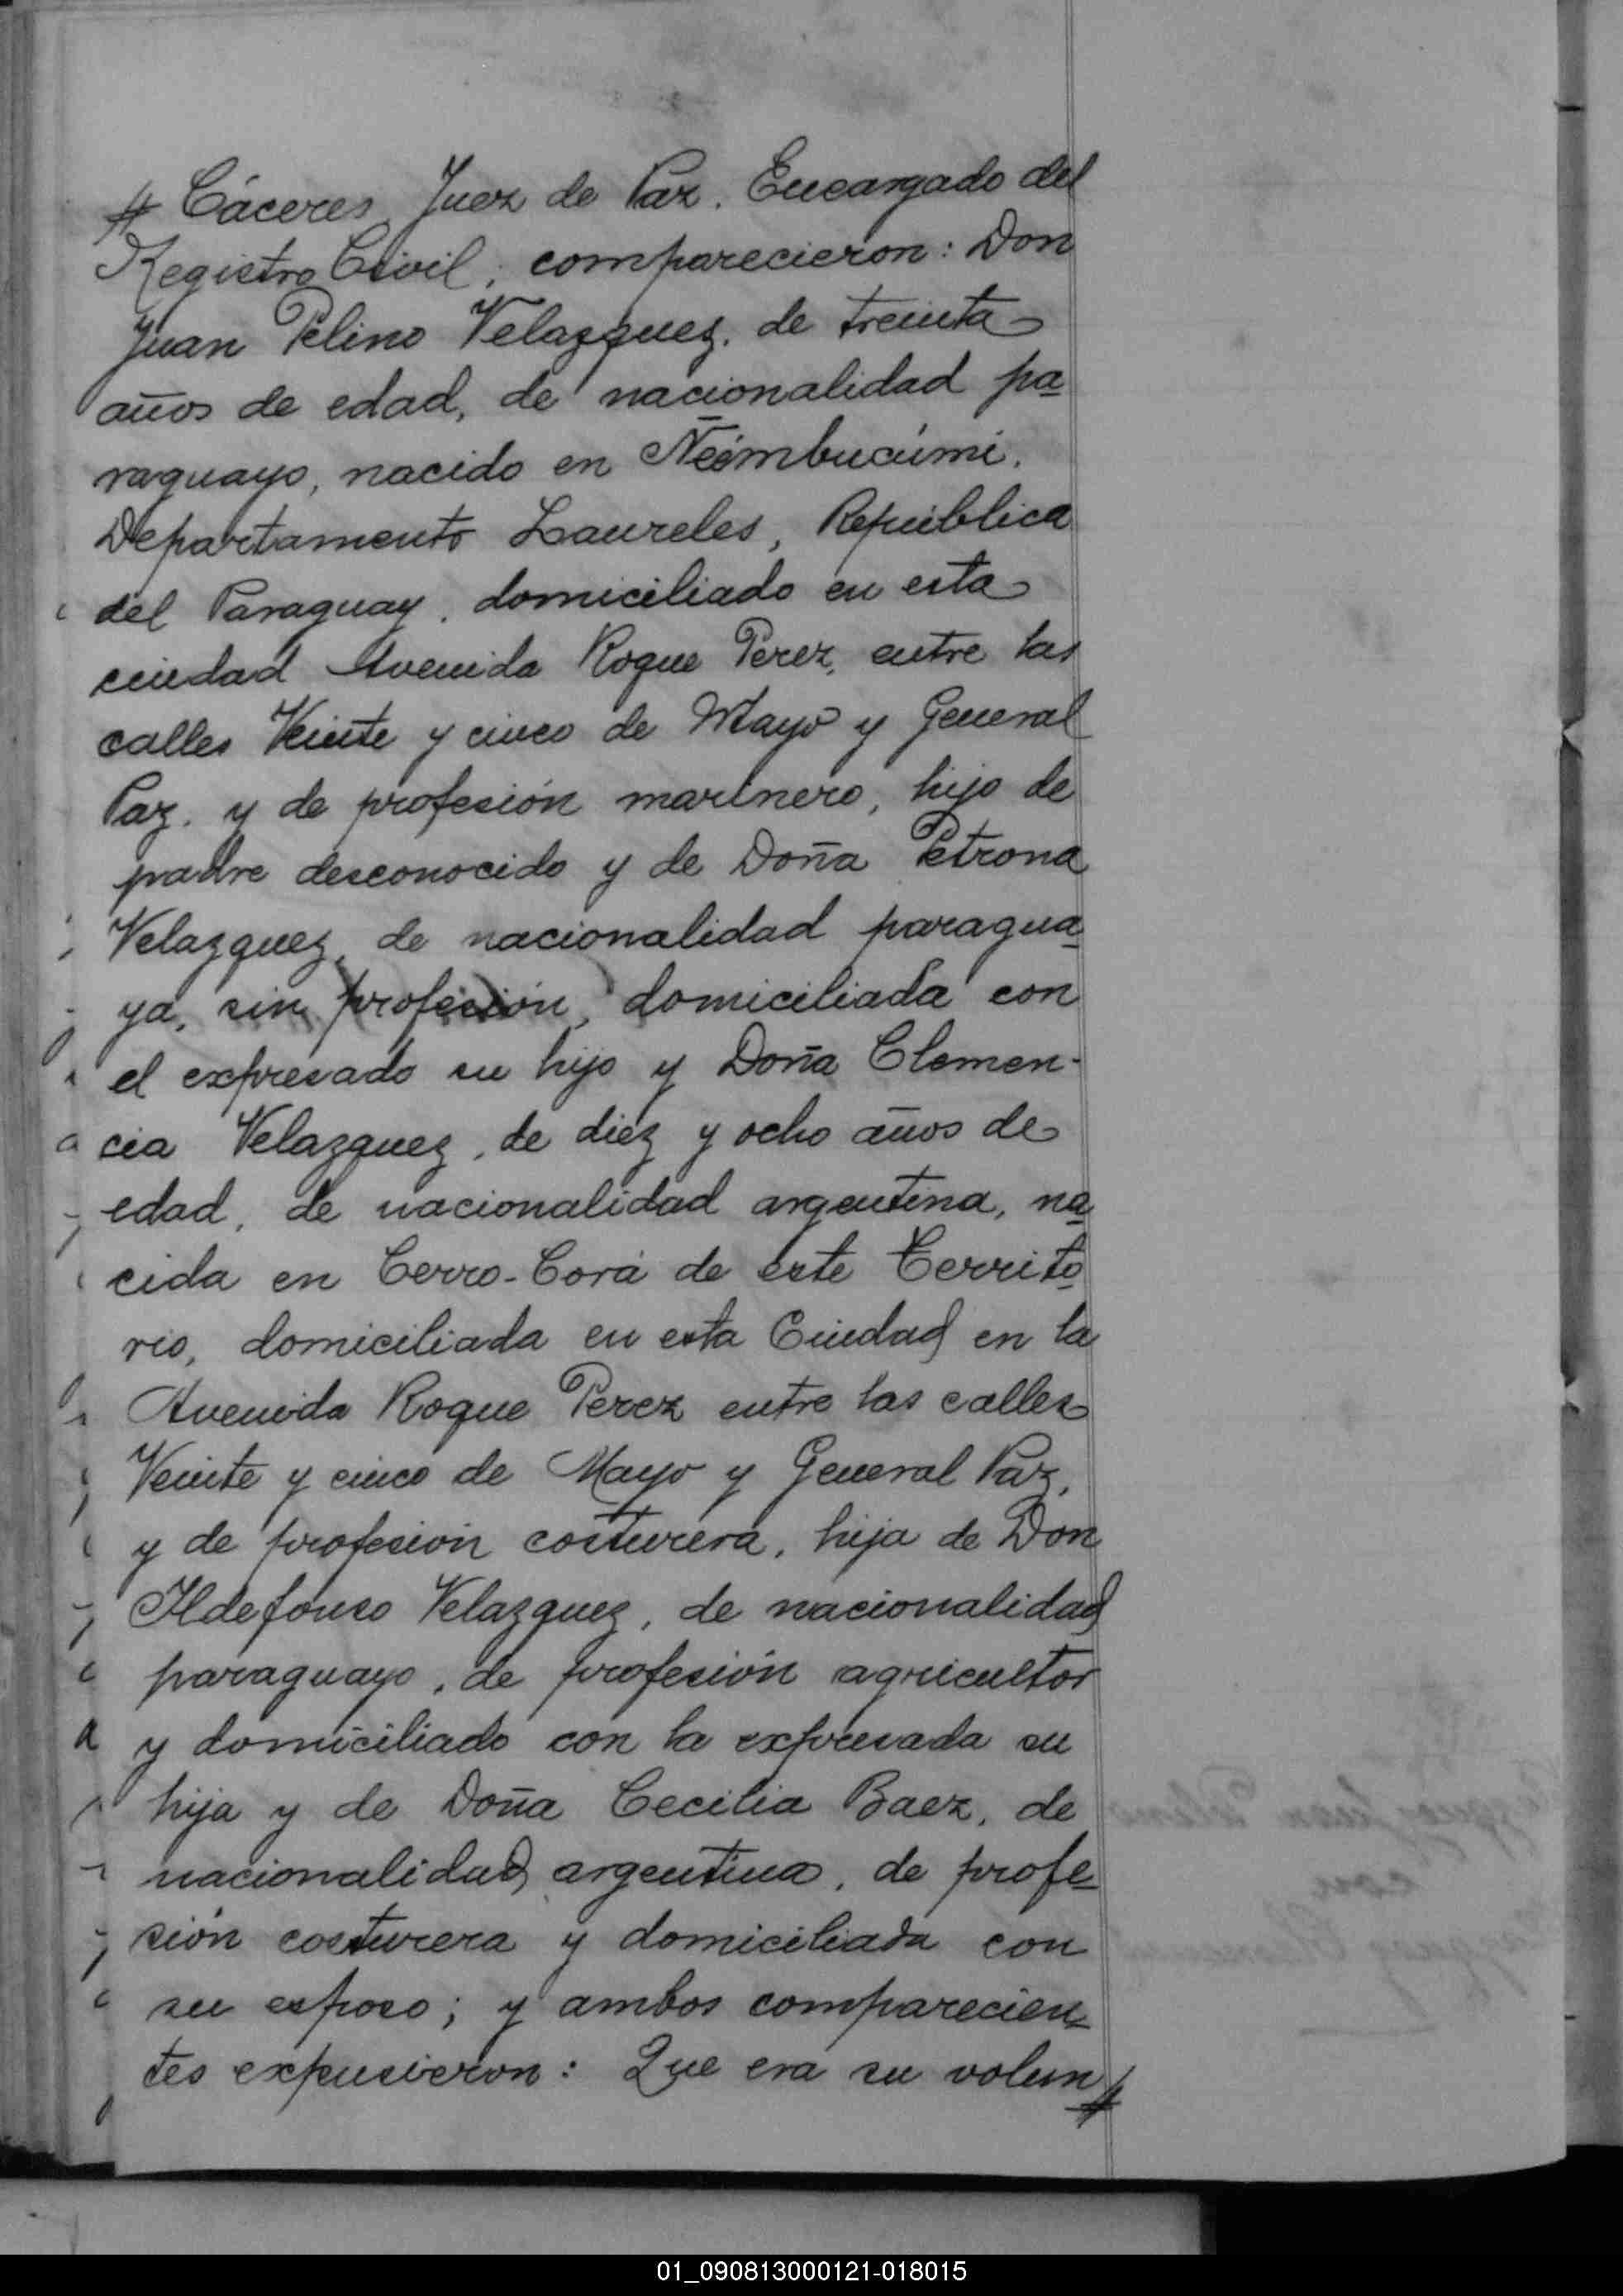 # Cáceres, Juez de Paz. Encargado del
Registro Civil, comparecieron: Don
Juan Pelino Velazquez, de treinta
años de edad, de nacionalidad pa
raguayo, nacido en Ñeémbucúmi,
Departamento Laureles, República
del Paraguay, domiciliado en esta
ciudad Avenida Roque Perez, entre las
calles Veinte y cinco de Mayo y General
Paz, y de profesión marinero, hijo de
padre desconocido y de Doña Petrona
Velazquez, de nacionalidad paragua
ya, sin profesión, domiciliada con
el expresado su hijo y Doña Clemen-
cia Velazquez, de diez y ocho años de
edad, de nacionalidad argentina, na
cida en Cerro-Corá de este Territo
rio, domiciliada en esta Ciudad en la
Avenida Roque Perez entre las calles
Veinte y cinco de Mayo y General Paz,
y de profesión costurera, hija de Don
Ildefonso Velazquez, de nacionalidad
paraguayo, de profesión agricultor
y domiciliado con la expresada su
hija y de Doña Cecilia Baez, de
nacionalidad argentina, de profe
sión costurera y domiciliada con
su esposo; y ambos comparecien
tes expusieron: Que era su volun #
01_090813000121-018015